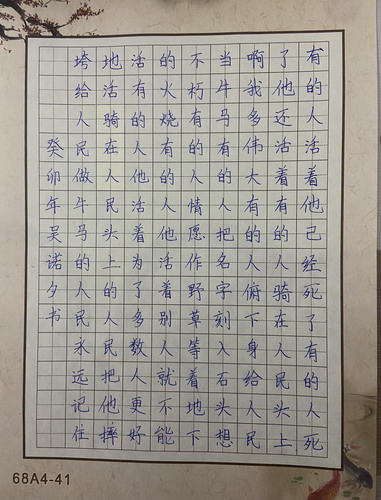 有的人活着他己经死了有的人死
了他还活着有的人骑在人民头上
啊我多伟大有的人俯下身给人民
当牛马有的人把名字刻入石头想
不朽有的人情愿作野草等着地下
的火烧有的人他活着别人就不能
活有的人他活着为了多数人更好
地活骑在人民头上的人民把他摔
垮给人民做牛马的人民永远记住
癸卯年吴诺夕书
68A4-41